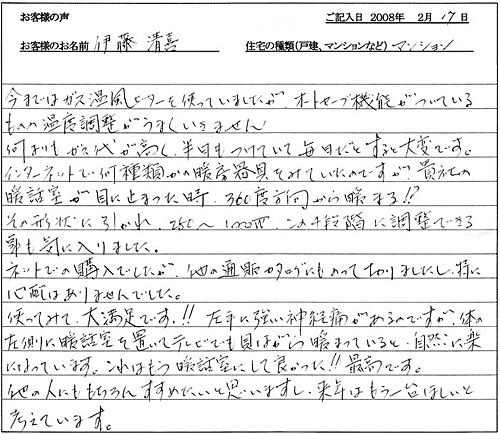 お客様の声 ご記入日 2008年 2月 17日
お客様のお名前 伊藤 清喜 住宅の種類(戸建、マンションなど) マンション
今まではガス温風ヒーターを使っていましたが、オートセーブ機能がついている
ものの温度調整がうまくいきません
何よりもガス代が高く、半日もつけていて毎日だとすると大変です。
インターネットで何種類かの暖房器具をみていたのですが、貴社の
暖話室が目に止まった時、360度方向から暖まる!?
その形状に引かれ、250〜1000W、この4段階に調整できる
事も気に入りました。
ネットでの購入でしたが、他の通販カタログにものっておりましたし、特に
心配はありませんでした。
使ってみて、大満足です!! 左手に強い神経痛があるのですが、体の
左側に暖話室を置いてテレビでも見ながら暖まっていると、自然に楽
になっています。これはもう暖話室にして良かった!!最高です。
他の人にももちろんすすめたいと思いますし、来年はもう一台ほしいと
考えています。